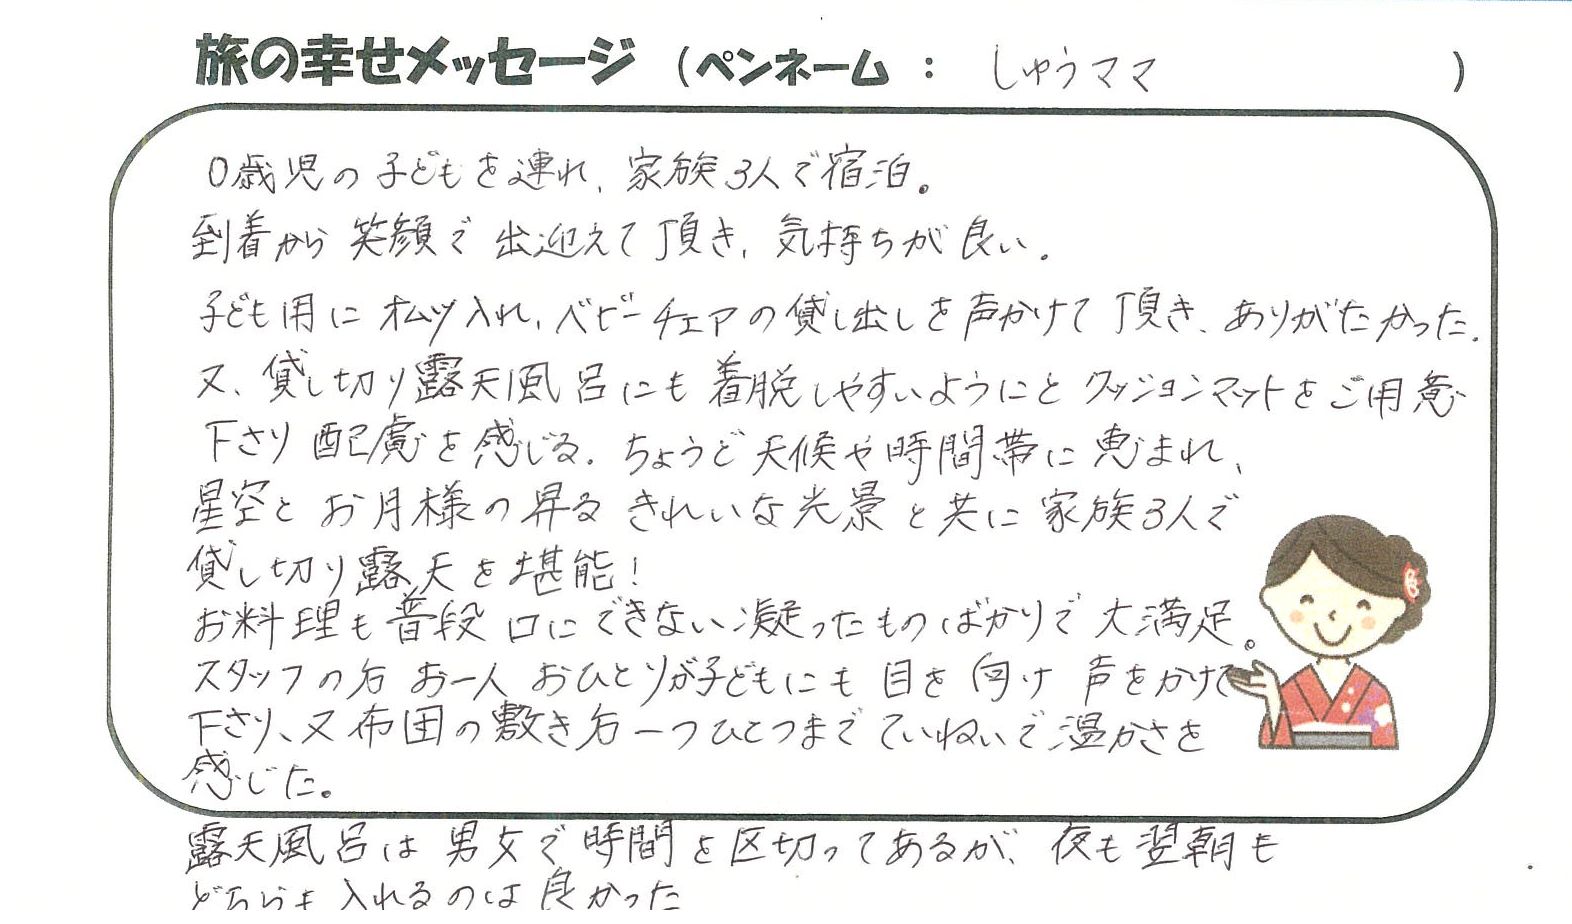 旅の幸せメッセージ (ペンネーム : しゅうママ )
0歳児の子どもを連れ、家族3人で宿泊。
到着から笑顔で出迎えて頂き、気持ちが良い。
子ども用にオムツ入れ、ベビーチェアの貸し出しを声かけて頂き、ありがたかった。
又、貸し切り露天風呂にも着脱しやすいようにとクッションマットをご用意
下さり配慮を感じる。ちょうど天候や時間帯に恵まれ、
星空とお月様の昇るきれいな光景と共に家族3人で
貸し切り露天を堪能!
お料理も普段口にできない凝ったものばかりで大満足。
スタッフの方お一人おひとりが子どもにも目を向け声をかけて
下さり、又布団の敷き方一つひとつまでていねいで温かさを
感じた。
露天風呂は男女で時間を区切ってあるが、夜も翌朝も
どちらも入れるのは良かった